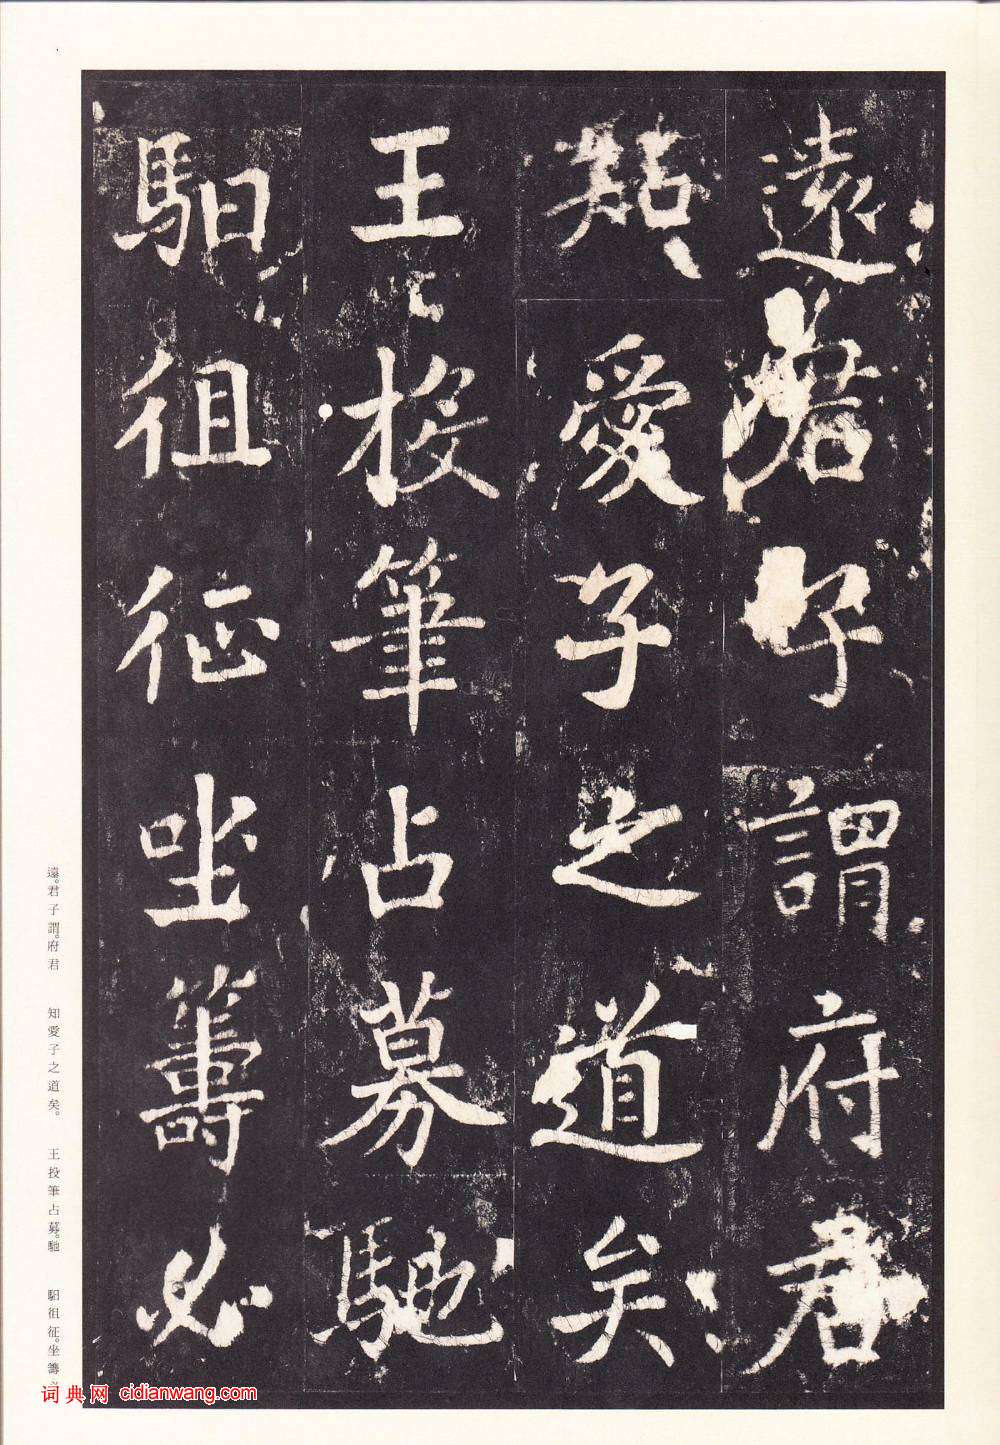 遠君子謂府君
知愛子之道矣
王投筆占募馳
馹徂征坐籌必
遠。君子謂。府君　知愛子之道矣。　王投筆占募。馳　馹徂征。坐籌
词典网 cidianwang.com